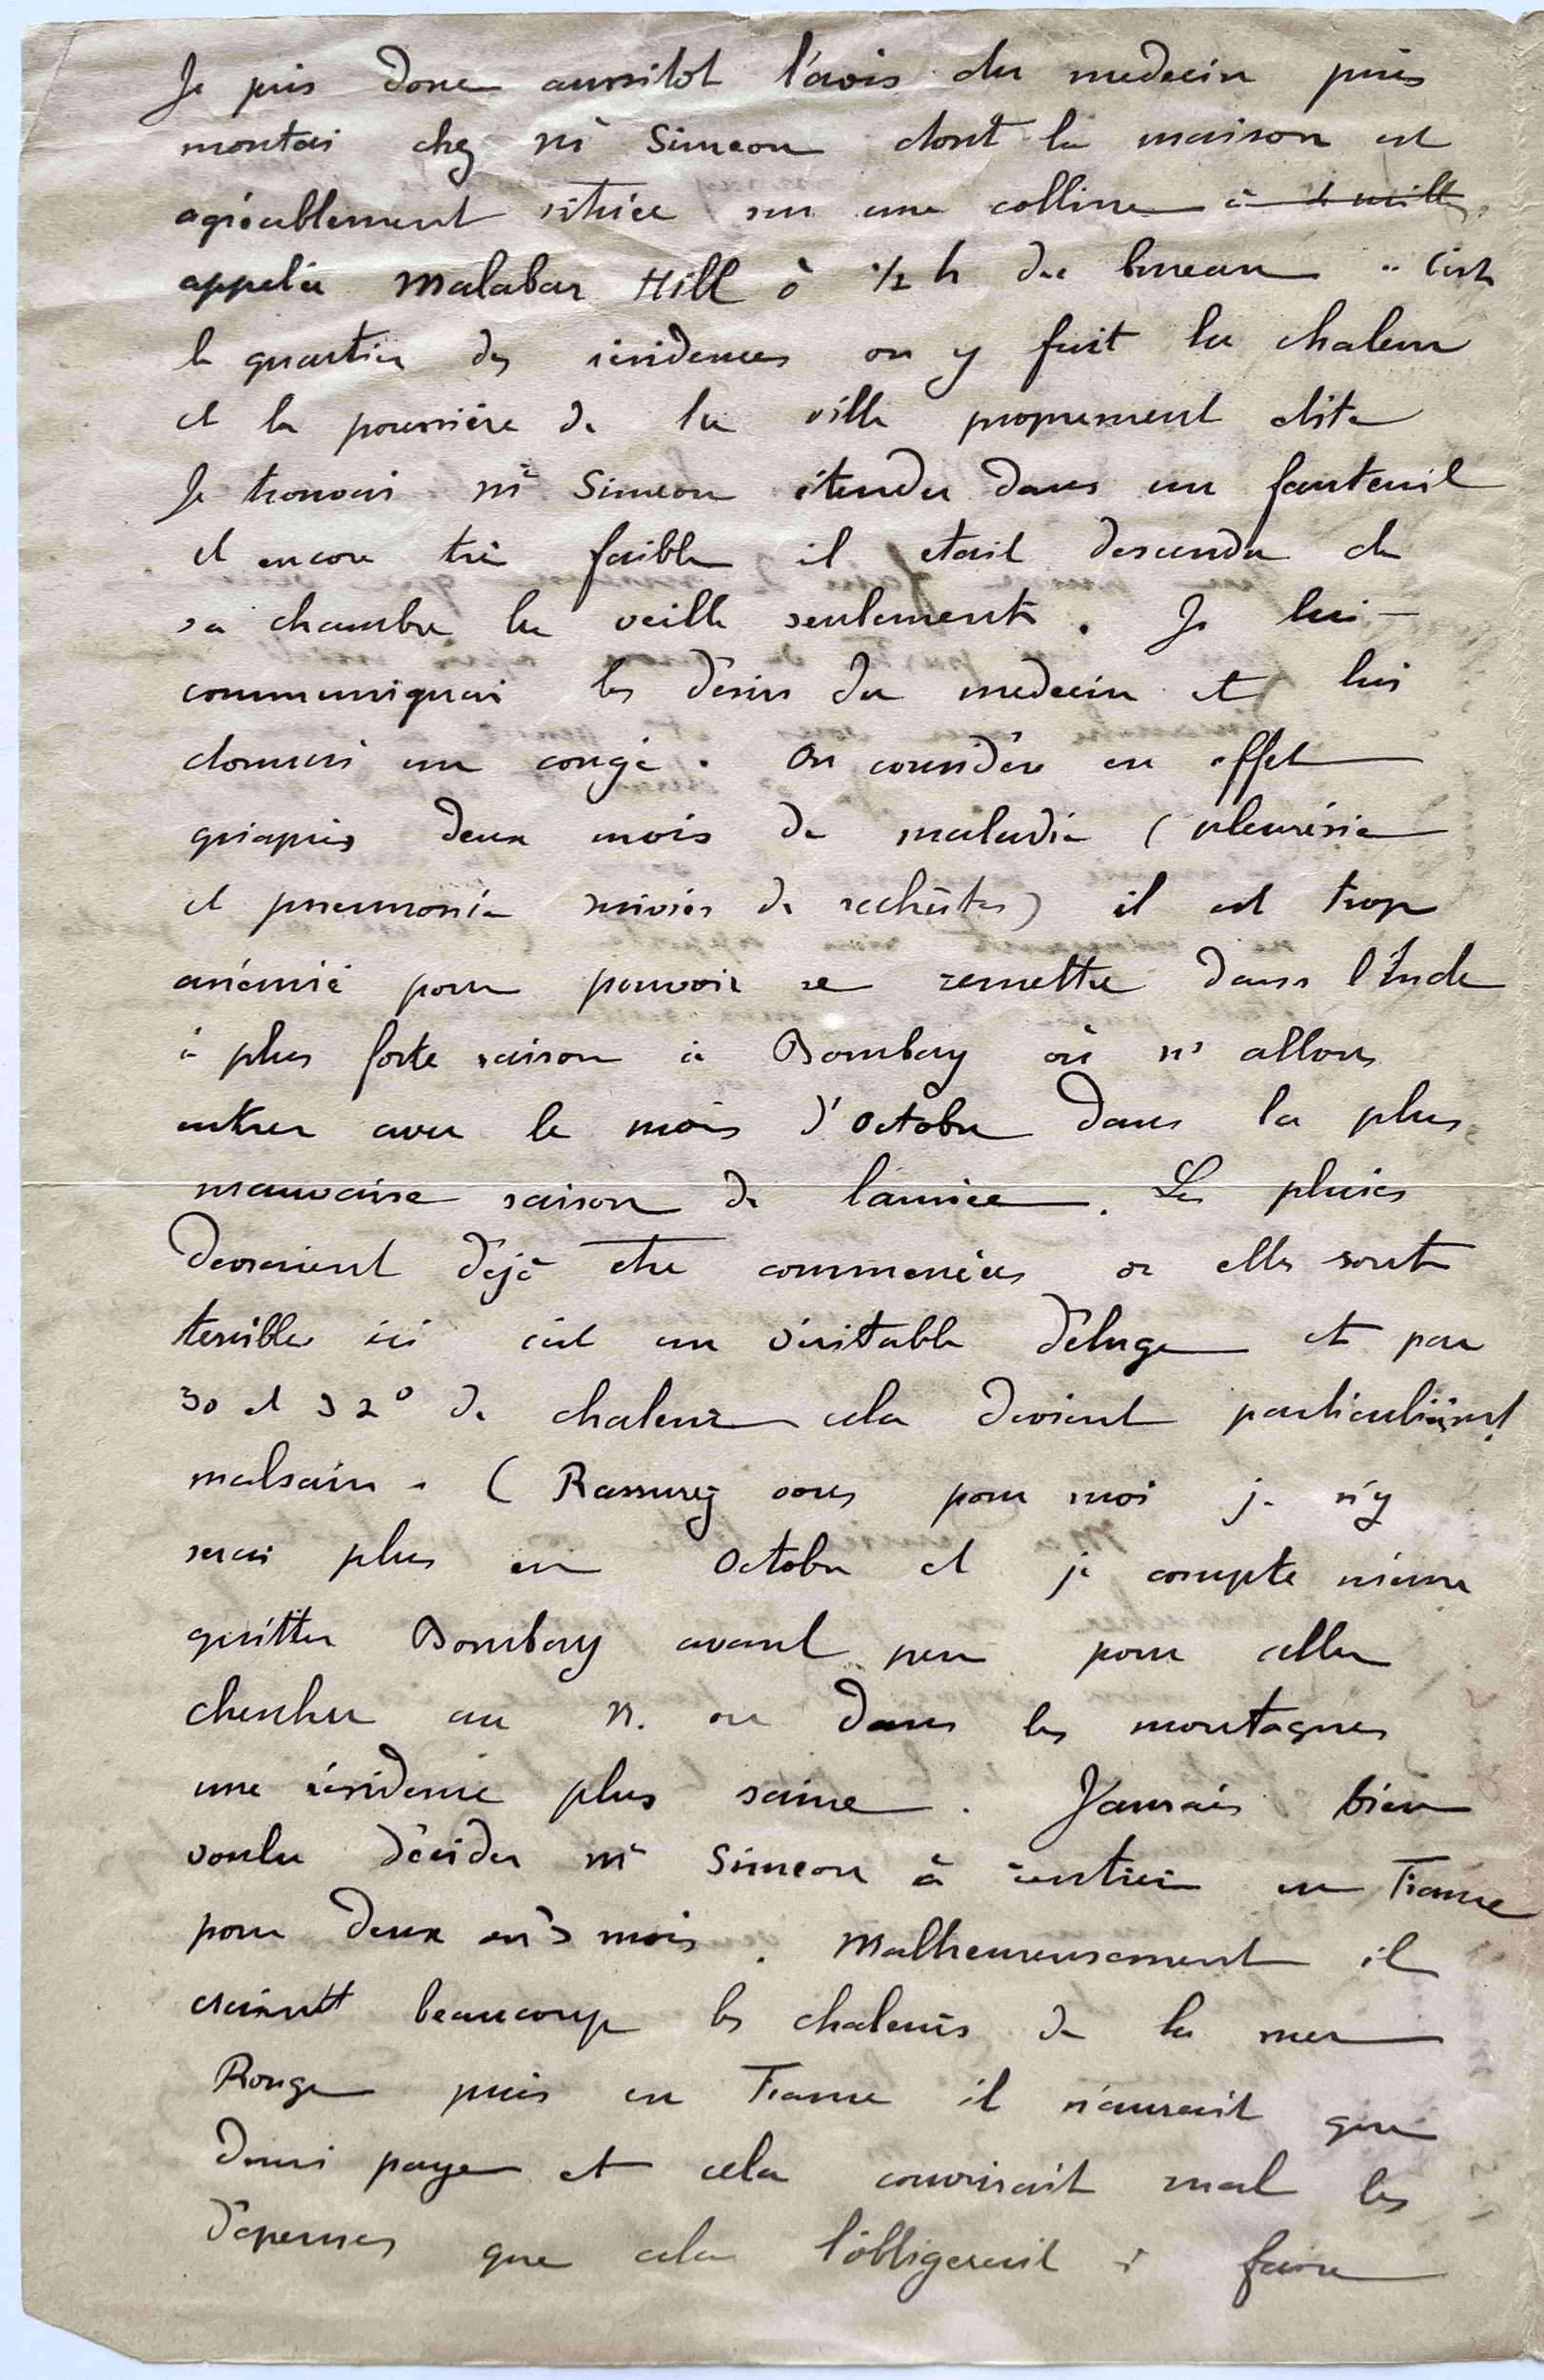 Je pris donc aussitot l'avis du medecin puis
montai chez Mr Simeon dont la maison est
agréablement située sur une colline à
appelée Malabar Hill à 1/2 h du bureau .. C'est
le quartier des résidences on y fuit la chaleur
et la poussière de la ville proprement dite
Je trouvai Mr Simeon étendu dans un fauteuil
et encore très faible il etait descendu de
sa chambre la veille seulement. Je lui
communiquai les désirs du medecin et lui
donnai un congé. On considère en effet
qu'après deux mois de maladie (pleurésie
et pneumonie suivies de rechûtes) il est trop
anémié pour pouvoir se remettre dans l'Inde
à plus forte raison à Bombay où ns allons
entrer avec le mois d'octobre dans la plus
mauvaise saison de l'année. Les pluies
devraient déjà etre commencées or elles sont
terribles ici c'est un véritable déluge et par
30 et 32° de chaleur cela devient particulièrmt
malsain. (Rassurez vous pour moi je n'y
serai plus en Octobre et je compte même
quitter Bombay avant peu pour aller
chercher au N. ou dans les montagnes
une résidence plus saine. J'aurais bien
voulu décider Mr Simeon à rentrer en France
pour deux ou 3 mois. Malheureusement il
craint beaucoup les chaleurs de la mer
Rouge puis en France il n'aurait que
demi paye et cela couvrirait mal les
dépenses que cela l'obligerait à faire